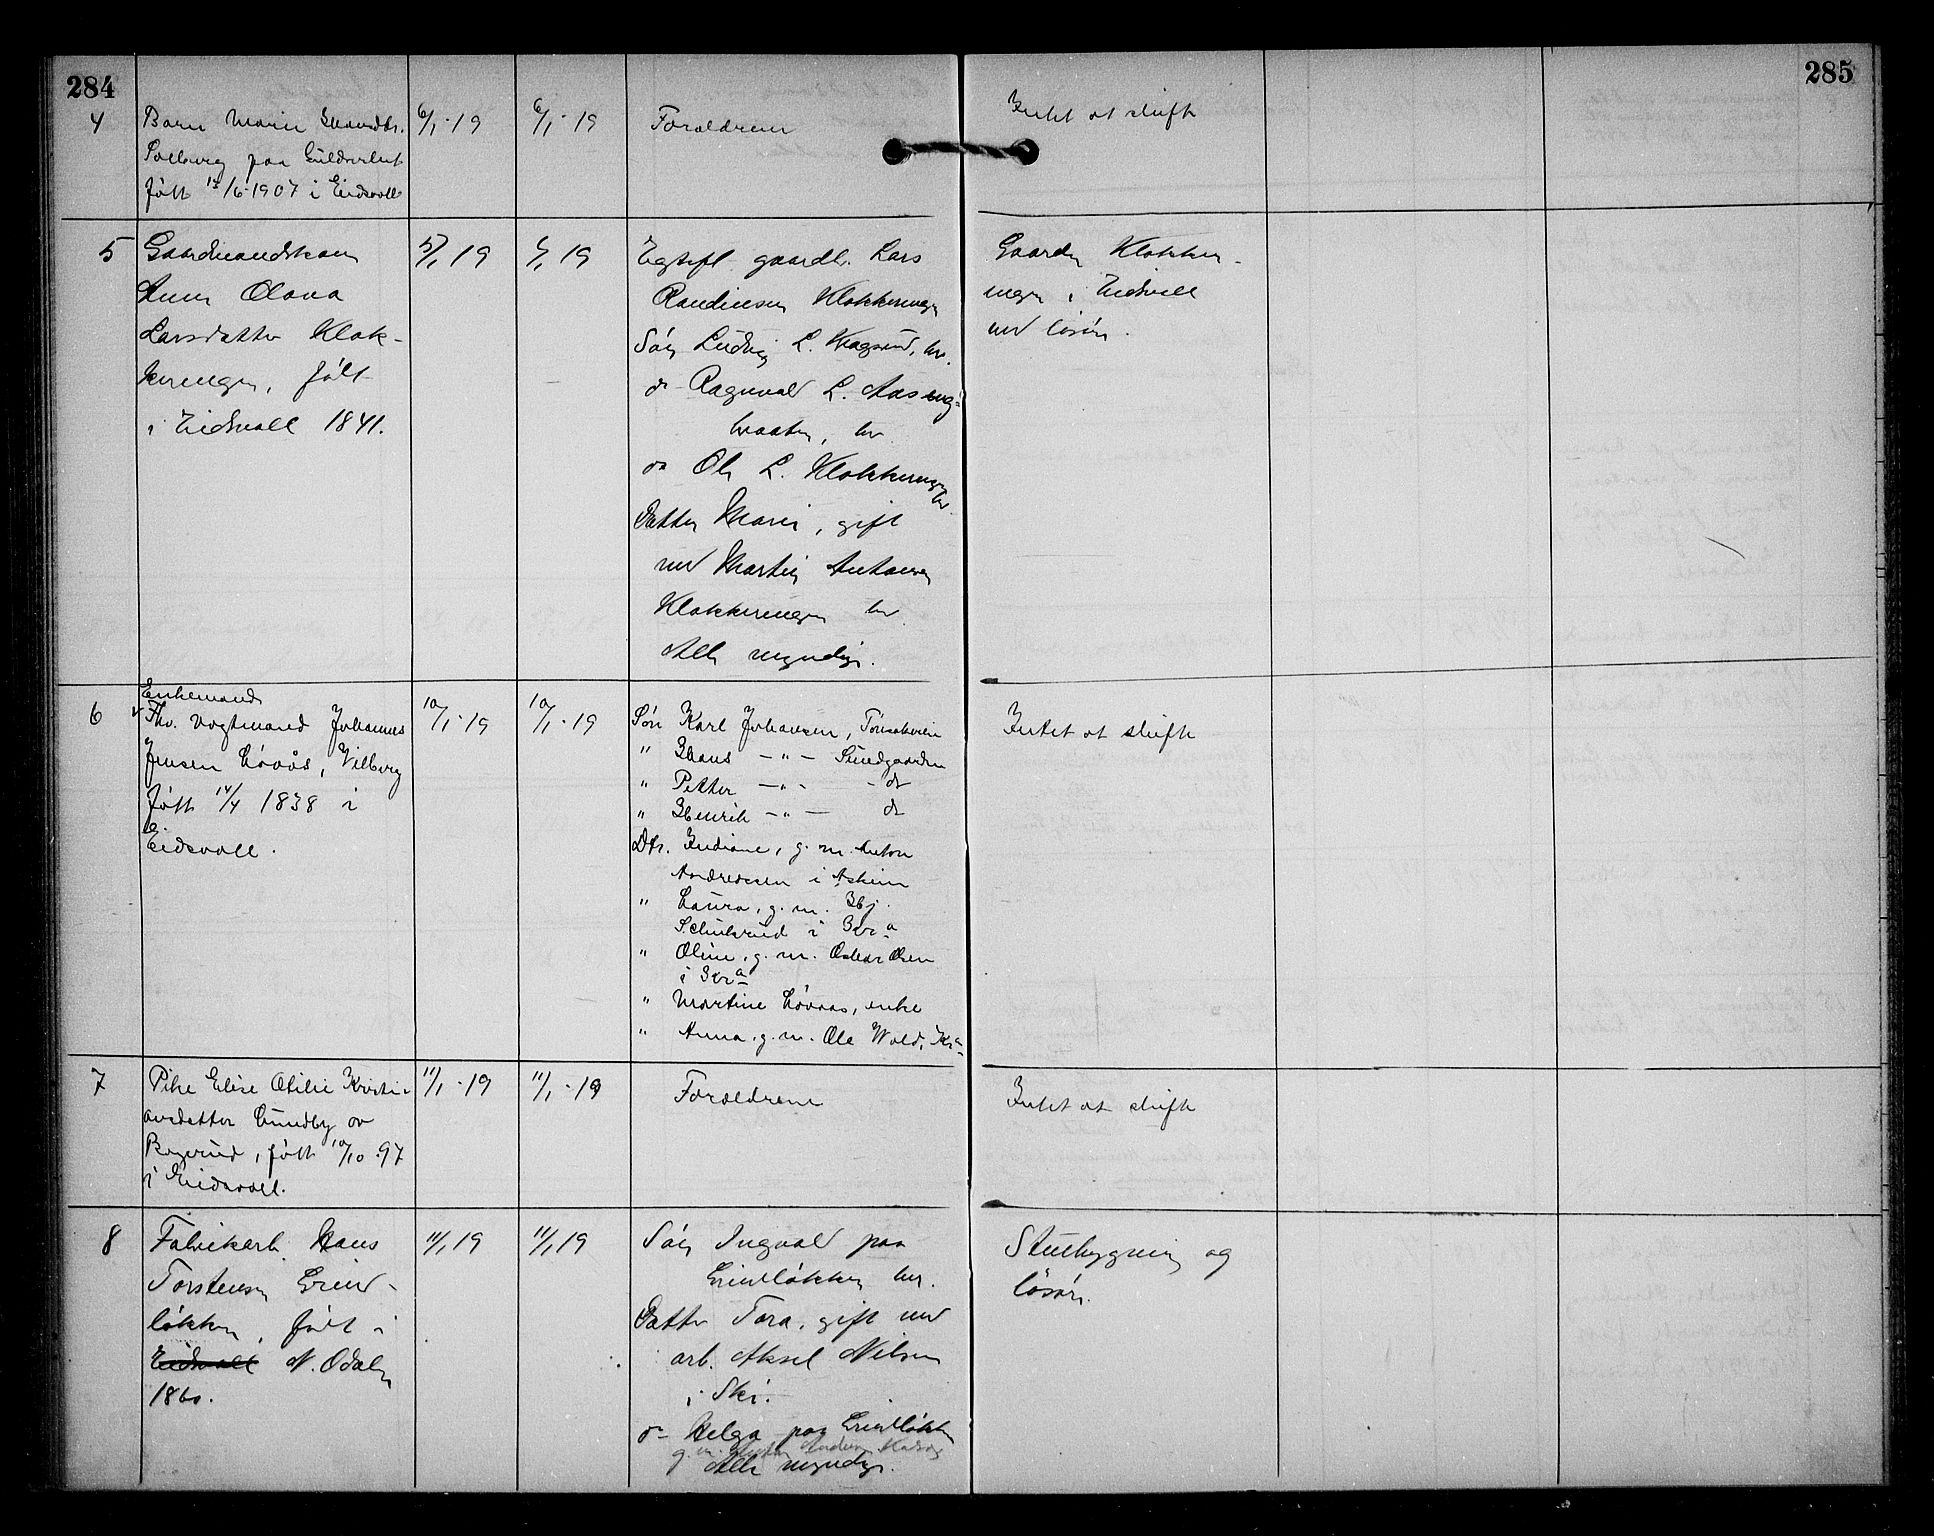 284
285
4
Barn Marie
Solberg paa
født 12/6-1907 i Eidsvoll
6/1-19
6/1-19
Forældrene
Intet at skifte
5
Gaardmandskone
Anne Olava
Larsdatter Klok-
keringen, født
i Eidsvoll 1841.
5/1 19
6/1 19
Egtefl. gaardb. Lars
Klokkeringen
Søn Ludvig L. her.
do Ragnvald L. Aaseng-
braaten, her
do Ole L. Klokkeringen
her
Datter Marie, gift
med Martin Antonsen
Klokkeringen her
Alle myndige.
Gaarden Klokker-
ingen i Eidsvoll
med løsøre.
6
Enkemand
Fhv. vogtmand Johannes
Jensen Løvaas, Vilberg
født 14/4 1838 i
Eidsvoll.
10/1-19
10/1-19
Søn Karl Johansen,
" Hans —"— Sundgaarden
" Petter —"— do
" Henrik —"— do
Dtr. Indiane, g. m. Anton
Andreassen i Askim
" Laura, g. m. Hj.
i Kra
" Oline, g. m. Oskar Olsen
i Kra
" Martine Løvaas, enke
" Anna, g. m. Ole Wold, Kra
Intet at skifte
7
Pike Elise Otilie Kristi-
ansdatter Lundby av
Bøgerud, født 10/10 97
i Eidsvoll.
11/1-19
11/1-19
Forældrene
Intet at skifte
8
Fabrikarb. Hans
Torstensen Grind-
løkken, født i
Eidsvoll N. Odalen
1860.
11/1 19
11/1 19
Søn Ingvald paa
Grindløkken her.
Datter Tora, gift med
arb. Aksel Nilsen
i Ski.
do Helga paa Grindløkken
g. m.
Alle myndige.
Stuebygning og
løsøre.